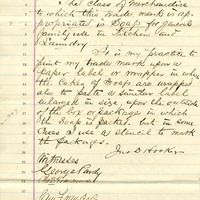 The class of merchandise
to which this trade mark is ap-
propriated is Soap for general
family use in Kitchen and
Laundry.
It is my practice to
print my trade mark upon a
paper label or wrapper in whi
the cakes of Soap are wrapped
also to paste a similar label
enlarged in size, upon the outside
of the box or package in which
the Soap is packed, but in some
Cases I use a stencil to mark
the packages.
Jno D Hooker
George Pardy